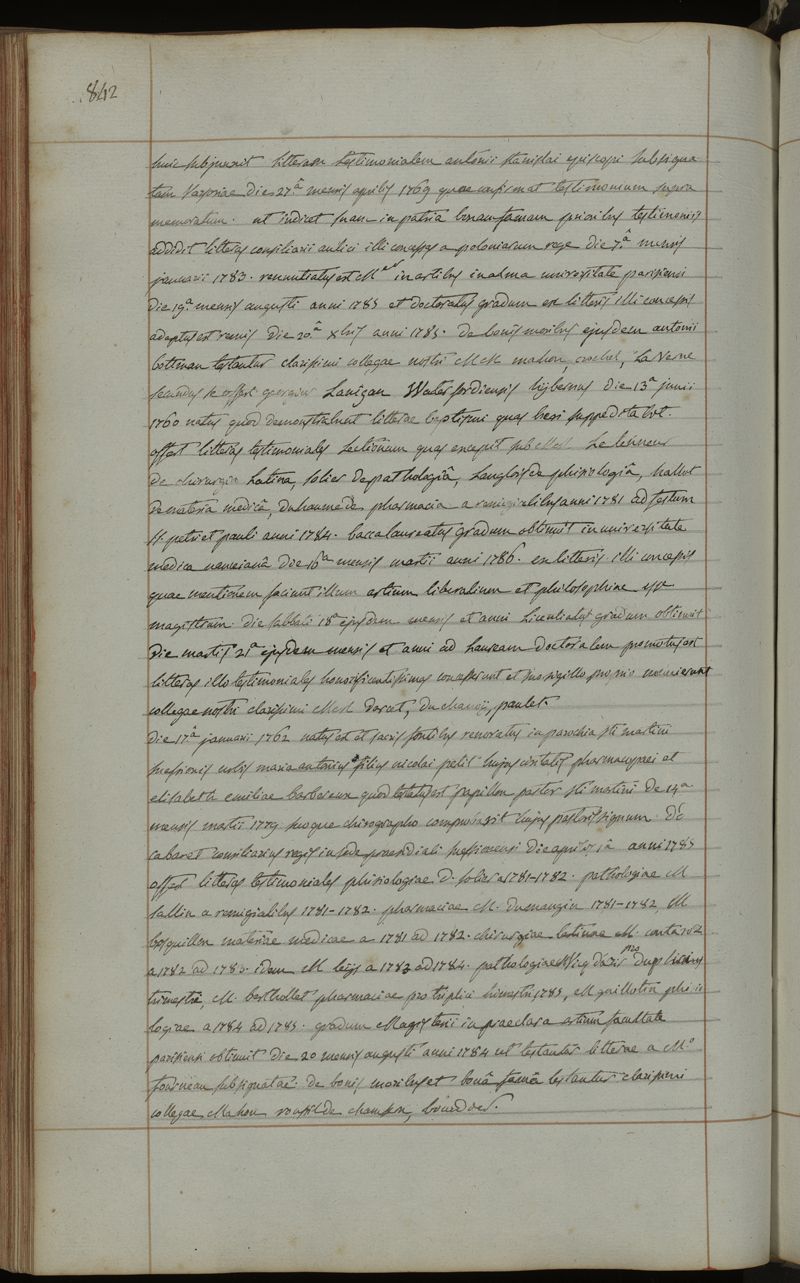 842
huic subjunxit litteram testimonialem antonii stanislai episcopi subsigna
tam die 27.â mensis aprilis 1769 quae confirmat testimonium supra
memoratum. ut indicet suam in patriâ bonam famam prioribus testimoniis
addidit litteras consiliarii aulici illi concessas a poloniarum rege die 7.â mensis
januarii 1783. renuntiatus est M in artibus in alma universitate parisiensi
die 19.a mensis augusti anni 1785 et doctoratus gradum ex litteris illi concessis
adeptus est remis die 20.â xbris anni 1785. de bonis moribus ejusdem antonii
testantur clarissimi collegae nostri MM mahon, crochet, La Vene
secundus se offert georgius Lanigan Waterfordiensis hybernus die 13.a junii
1760 natus quod demonstrabunt litterae baptismi quas brevi suppeditabit.
offert litteras testimoniales lectionum quas excepit sub MM.
de chirurgia Latina, solier de pathologiâ, Langlois de phisiologiâ, hallot
de materia medicâ, duhaume de pharmacia a remigialibus anni 1781 ad festum
SS petri et pauli anni 1784. baccalaureatus gradum obtinuit in universitate
medica die 16a mensis martii anni 1786. ex litteris illi concessis
quae mentionem faciunt illum artium liberalium et philosophiae esse
magistrum. die sabbati 18a ejusdem mensis et anni Licentiatus gradum obtinuit
die martis 21a ejusdem mensis et anni ad Lauream doctoralem promotus est
litteras illo testimoniales honorificentissimas concesserunt et suo sigillo proprio munierunt
collegae nostri clarissimi MM dorcet, Duchanoy, paulet.
die 17.â januarii 1762 natus est et sacris fontibus renovatus in parochia sti martini
urbis maria antonius filius nicolai petit hujus civitatis pharmacopoei et
elisabeth emiliae barbereux quod testatus est papillon pastor sti martini de 14a
mensis martii 1779 suoque chirographo comprobavit hujus pastoris signum. D.
cabaret consiliarius regis in sede praesidiali die aprilis 1a anni 1785
offert litteras testimoniales phisiologiae D. solier a 1781-1782. pathologiae M
sallin a remigialibus 1781-1782. pharmaciae M. dumangin 1781-1782, M
bosquillon materiae medicae a 1781 ad 1782. chirurgiae latinae M.
a 1782 ad 1783. idem M leys a 1783 ad 1784. pathologiae pro
trimestre, M. berthollet pharmaciae pro triplici trimestri 1785, M guillotin phisio
logiae a 1784 ad 1785. gradum Magisterii in praeclara artium facultate
parisiensi obtinuit die 20 mensis augusti anni 1784 ut testantur litterae a M.o
fourneau subsignatae. de bonis moribus et bonâ famâ testantur clarissimi
collegae Mahon roussille chamseru, bourdois.